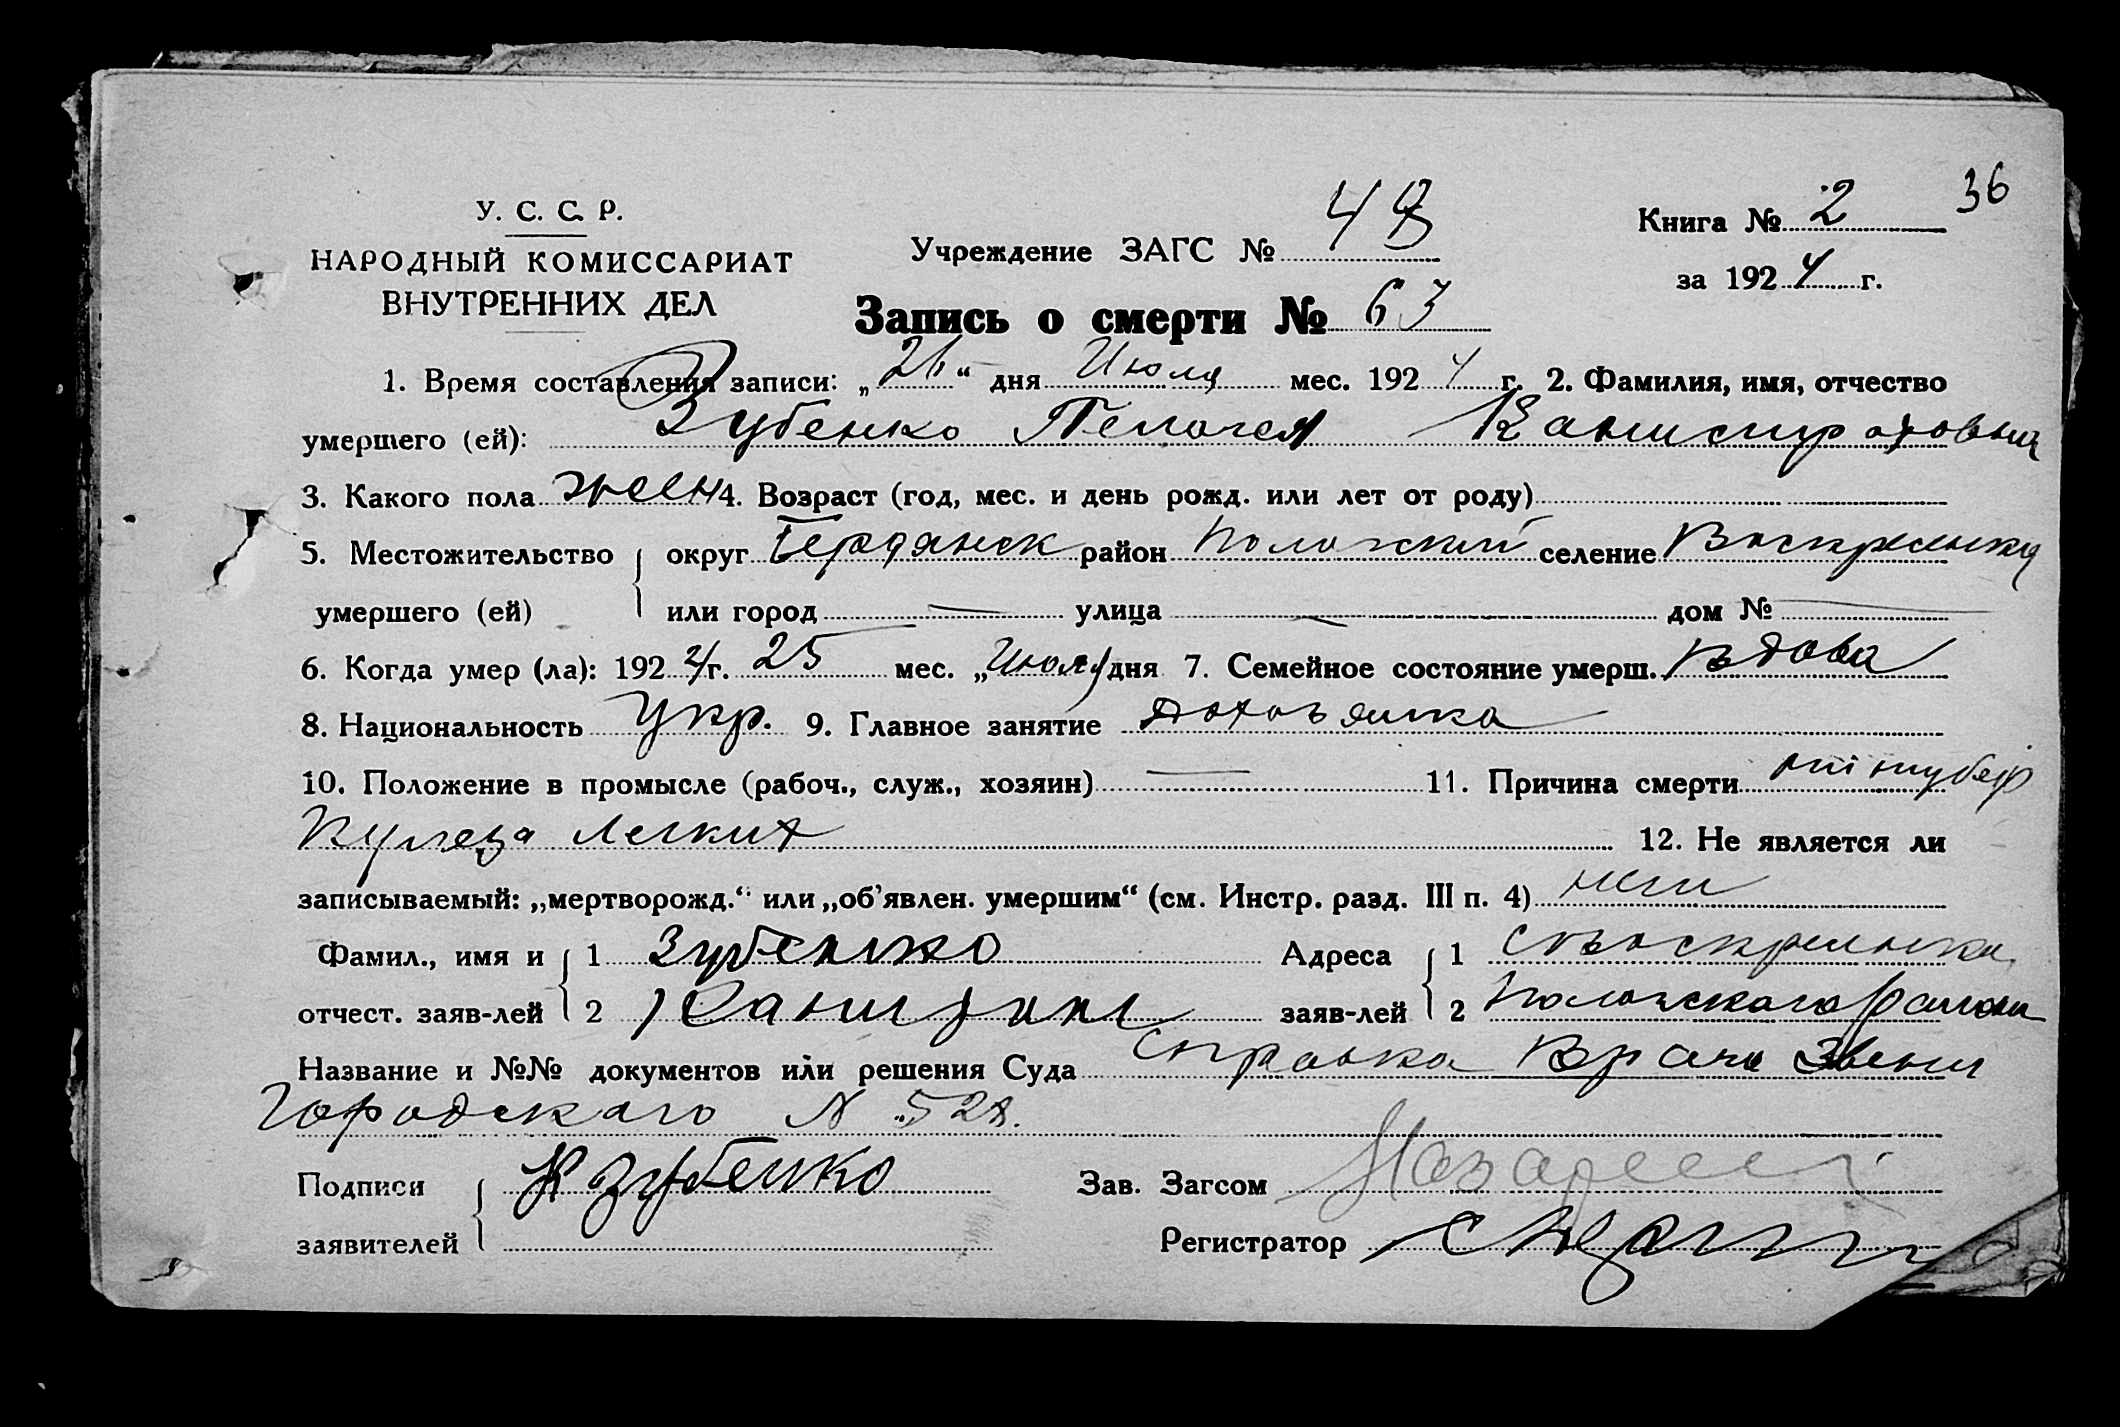 36
У. С. С. Р.
НАРОДНЫЙ КОМИССАРИАТ
ВНУТРЕННИХ ДЕЛ
Учреждение ЗАГС № 48
Книга № 2
за 1924 г.
Запись о смерти № 63
1. Время составления записи: „26“ дня Июля мес. 1924 г. 2. Фамилия, имя, отчество
умершего (ей): Зубенко Пелагея
3. Какого пола жен 4. Возраст (год, мес. и день рожд. или лет от роду)
5. Местожительство округ Бердянск район Пологский селение Воскресенка
умершего (ей) или город — улица — дом № —
6. Когда умер (ла): 1924 г. 25 мес. „Июля дня 7. Семейное состояние умерш. вдова
8. Национальность Укр. 9. Главное занятие домохозяйка
10. Положение в промысле (рабоч., служ., хозяин) — 11. Причина смерти от тубер
кулеза легких 12. Не является ли
записываемый: „мертворожд.“ или „об’явлен. умершим“ (см. Инстр. разд. III п. 4) нет
Фамил., имя и 1 Зубенко Адреса 1 с Воскресенка
отчест. заяв-лей 2 заяв-лей 2 Пологского района
Название и №№ документов или решения Суда Справка Врача
городского N 528.
Подписи К Зубенко Зав. Загсом
заявителей Регистратор